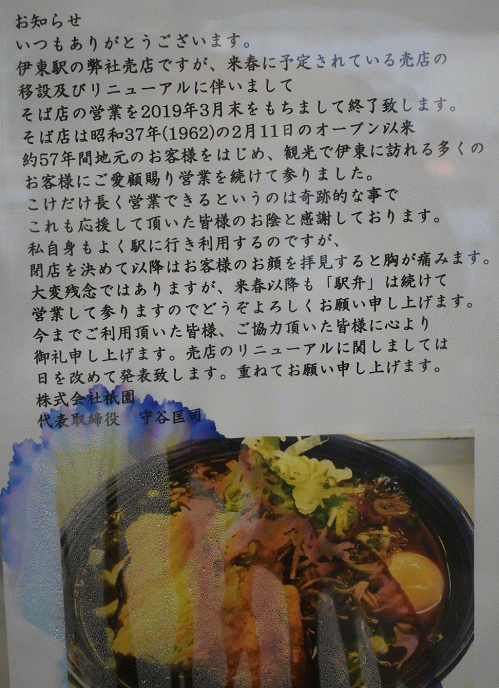 お知らせ
いつもありがとうございます。
伊東駅の弊社売店ですが、来春に予定されている売店の
移設及びリニューアルに伴いまして
そば店の営業を2019年3月末をもちまして終了致します。
そば店は昭和37年(1962)の2月11日のオープン以来
約57年間地元のお客様をはじめ、観光で伊東に訪れる多くの
お客様にご愛顧賜り営業を続けて参りました。
こけだけ長く営業できるというのは奇跡的な事で
これも応援して頂いた皆様のお陰と感謝しております。
私自身もよく駅に行き利用するのですが、
閉店を決めて以降はお客様のお顔を拝見すると胸が痛みます。
大変残念ではありますが、来春以降も「駅弁」は続けて
営業して参りますのでどうぞよろしくお願い申し上げます。
今までご利用頂いた皆様、ご協力頂いた皆様に心より
御礼申し上げます。売店のリニューアルに関しましては
日を改めて発表致します。重ねてお願い申し上げます。
株式会社祇園
代表取締役　守谷匡司